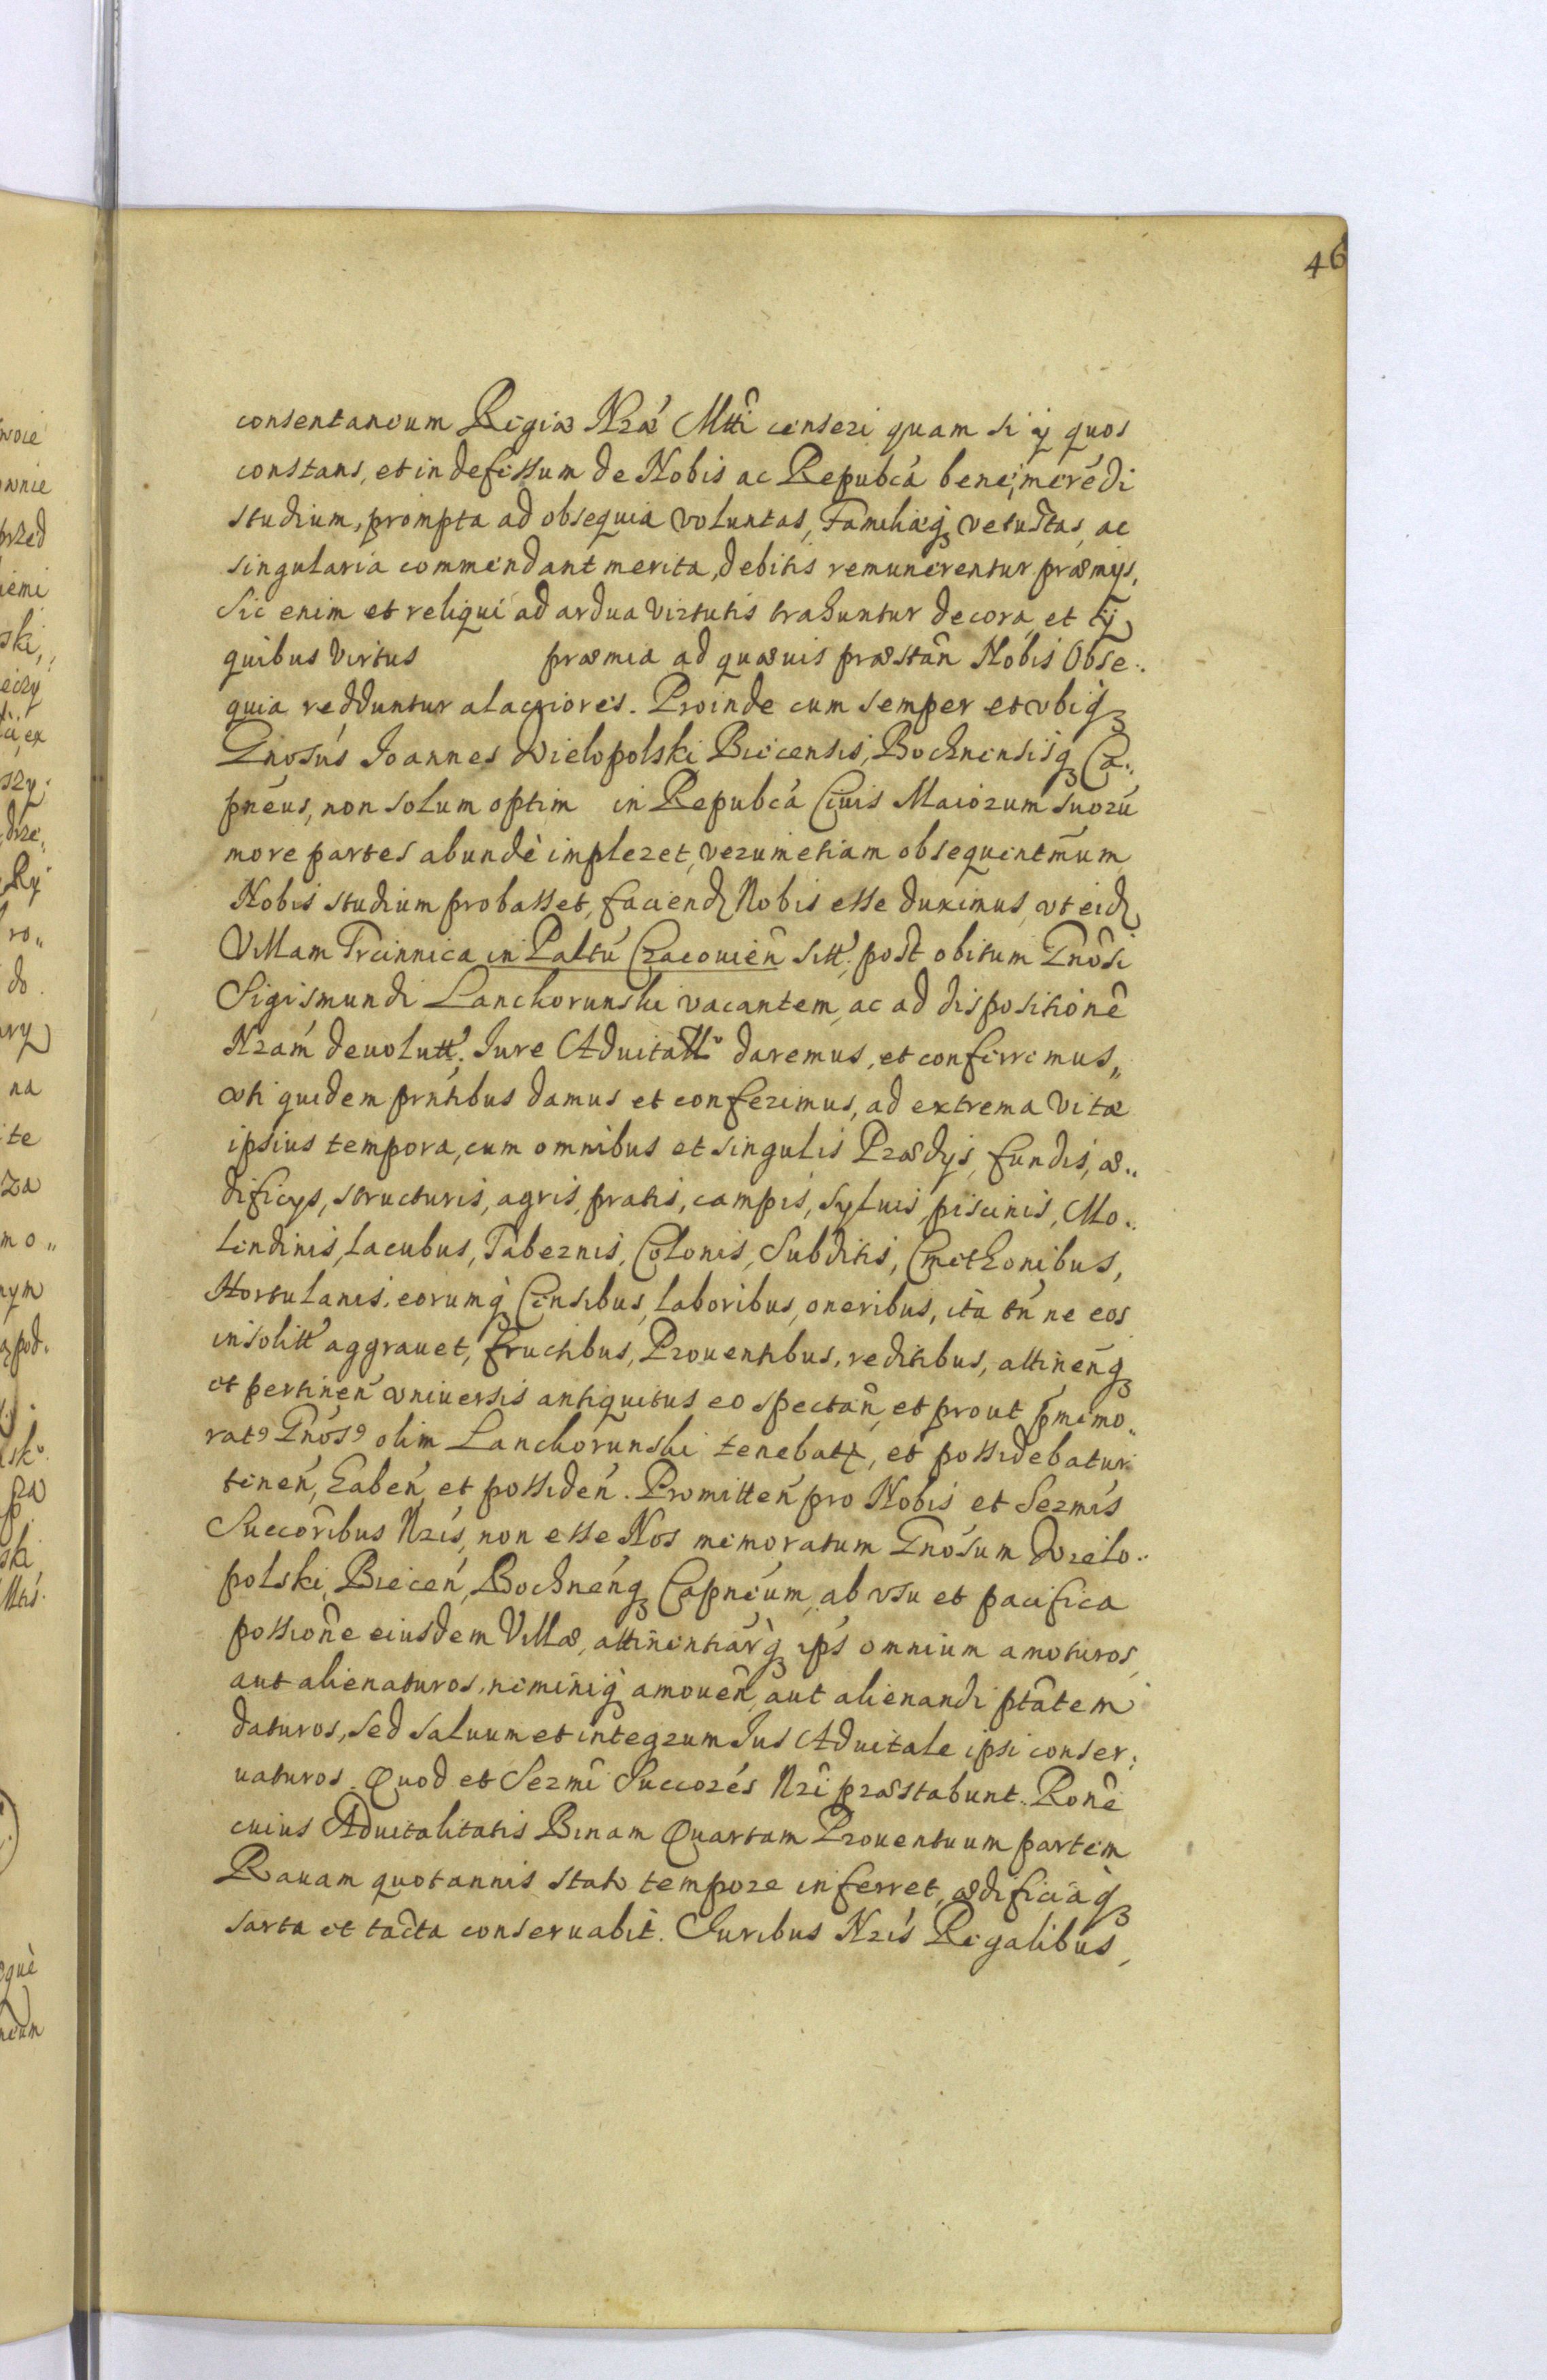 46
consentaneum Regiæ Nræ Mtti censeri quam si ij quos
constans, et indefessum de Nobis ac Repubca bene merēdi
studium, prompta ad obsequia voluntas, Familiæq; vetustas, ac
singularia commendant merita, debitis remunerentur præmijs,
Sic enim et reliqui ad ardua virtutis trahuntur decora, et ij
quibus virtus præmia ad quæuis præstan̄ Nobis Obse-
quia redduntur alacriores. Proinde cum semper et vbiq;
Gnosus Joannes Wielopolski Biecensis, Bochnensisq; Ca-
pneus, non solum optim in Repubca Ciuis Maiorum suorū
more partes abundè impleret, verumetiam obsequentm̄um
Nobis studium probasset, faciend Nobis esse duximus, vt eid
Villam Trcinnica in Paltu Cracouien̄ sitt. post obitum Gnosi
Sigismundi Lanckorunski vacantem, ac ad dispositionē
Nram deuolutt. Jure Aduitallo daremus, et conferremus,
vti quidem prntibus damus et conferimus, ad extrema vitæ
ipsius tempora, cum omnibus et singulis Prædijs, fundis, æ-
dificijs, structuris, agris, pratis, campis, syluis, piscinis, Mo-
lendinis, lacubus, Tabernis, Colonis, Subditis, Cmethonibus,
Hortulanis, eorumq; Censibus, laboribus, oneribus, ità tn̄ ne eos
insolitt aggrauet, fructibus, Prouentibus, reditibus, attinen̄q;
et pertinen̄ vniuersis antiquitus eo spectan̄, et prout pmemo-
rat9 Gnos9 olim Lanckorunski tenebat, et possidebatur
tenen̄, haben̄, et possiden̄. Promitten̄ pro Nobis et Sermis
Succoribus Nris, non esse Nos memoratum Gnosum Wielo-
polski, Biecen̄, Bochnen̄q; Capneum, ab vsu et pacifica
possione eiusdem Villæ, attinentiarq; ips omnium amoturos,
aut alienaturos, neminiq; amouen̄, aut alienandi ptatem
daturos, sed saluum et integrum Jus Aduitale ipsi conser-
uaturos. Quod et Sermi Succores Nri præstabunt. Rone
cuius Aduitalitatis Binam Quartam Prouentuum partem
Rauam quotannis stato tempore inferret, ædificiaq;
sarta et tecta conseruabit. Juribus Nris Regalibus,